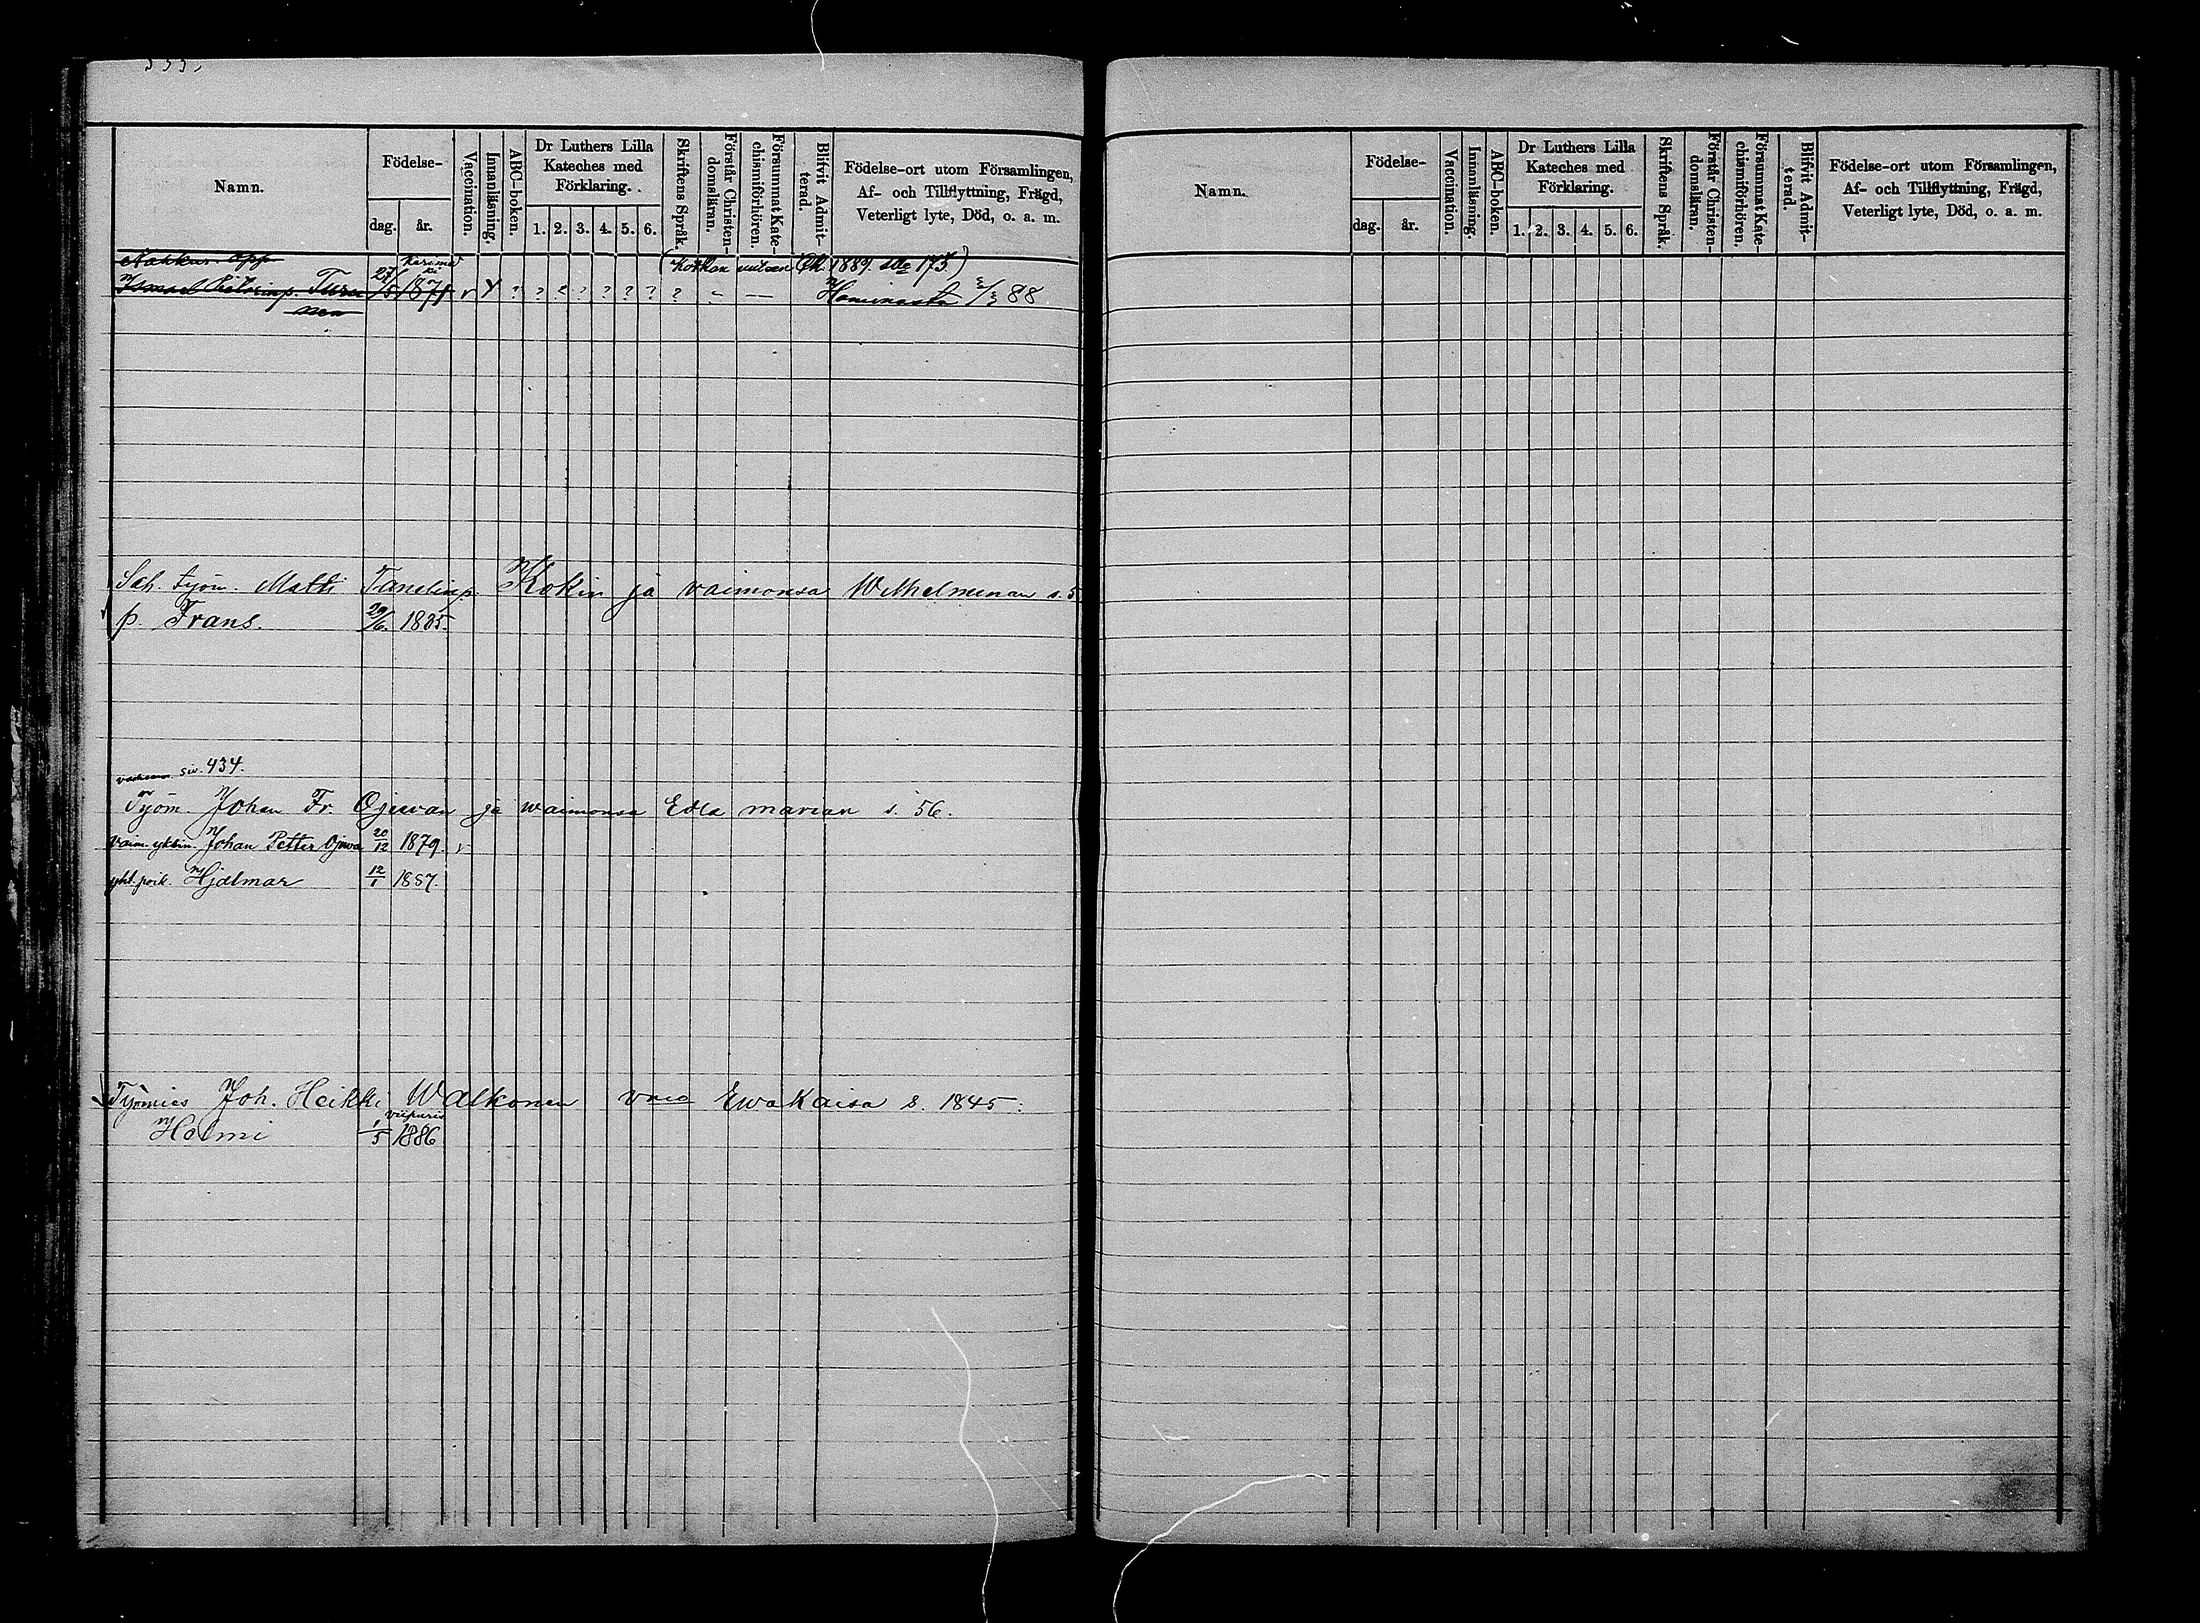 333.
Namn.
Födelse-
dag.
år.
Vaccination.
Innanläsning.
ABC-boken.
Dr Luthers Lilla
Kateches med
Förklaring.
1. 2. 3. 4. 5. 6.
Skriftens Språk.
Förstår Christen-
domsläran.
Försummat Kate-
chismiförhören.
Blifvit Admit-
terad.
Födelse-ort utom Församlingen,
Af- och Tillflyttning, Frägd,
Veterligt lyte, Död, o. a. m.
Nahkur. opp
Kerimä
ki
1889. 173.)
Turu 27/5 1871 ? ? ? ? ? ? ? ? - — Haminasta 88
nen
Matti Tanelinp. Kokin ja vaimonsa Wilhelminan s. 5
p. Frans. 29/6. 1885.
siv. 434.
Työm. Johan Fr. Ojewan ja waimonsa Edla marian s. 56.
Johan Petter Ojewa 20/12 1879.
poik. Hjalmar 12/1 1887.
Työmies Joh. Heikki Walkonen Ewa Kaisa s. 1845:
Wiipuris
Helmi 1/5 1886
Namn.
Födelse-
dag.
år.
Vaccination.
Innanläsning.
ABC-boken.
Dr Luthers Lilla
Kateches med
Förklaring.
1. 2. 3. 4. 5. 6.
Skriftens Språk.
Förstår Christen-
domsläran.
Försummat Kate-
chismiförhören.
Blifvit Admit-
terad.
Födelse-ort utom Församlingen,
Af- och Tillflyttning, Frägd,
Veterligt lyte, Död, o. a. m.